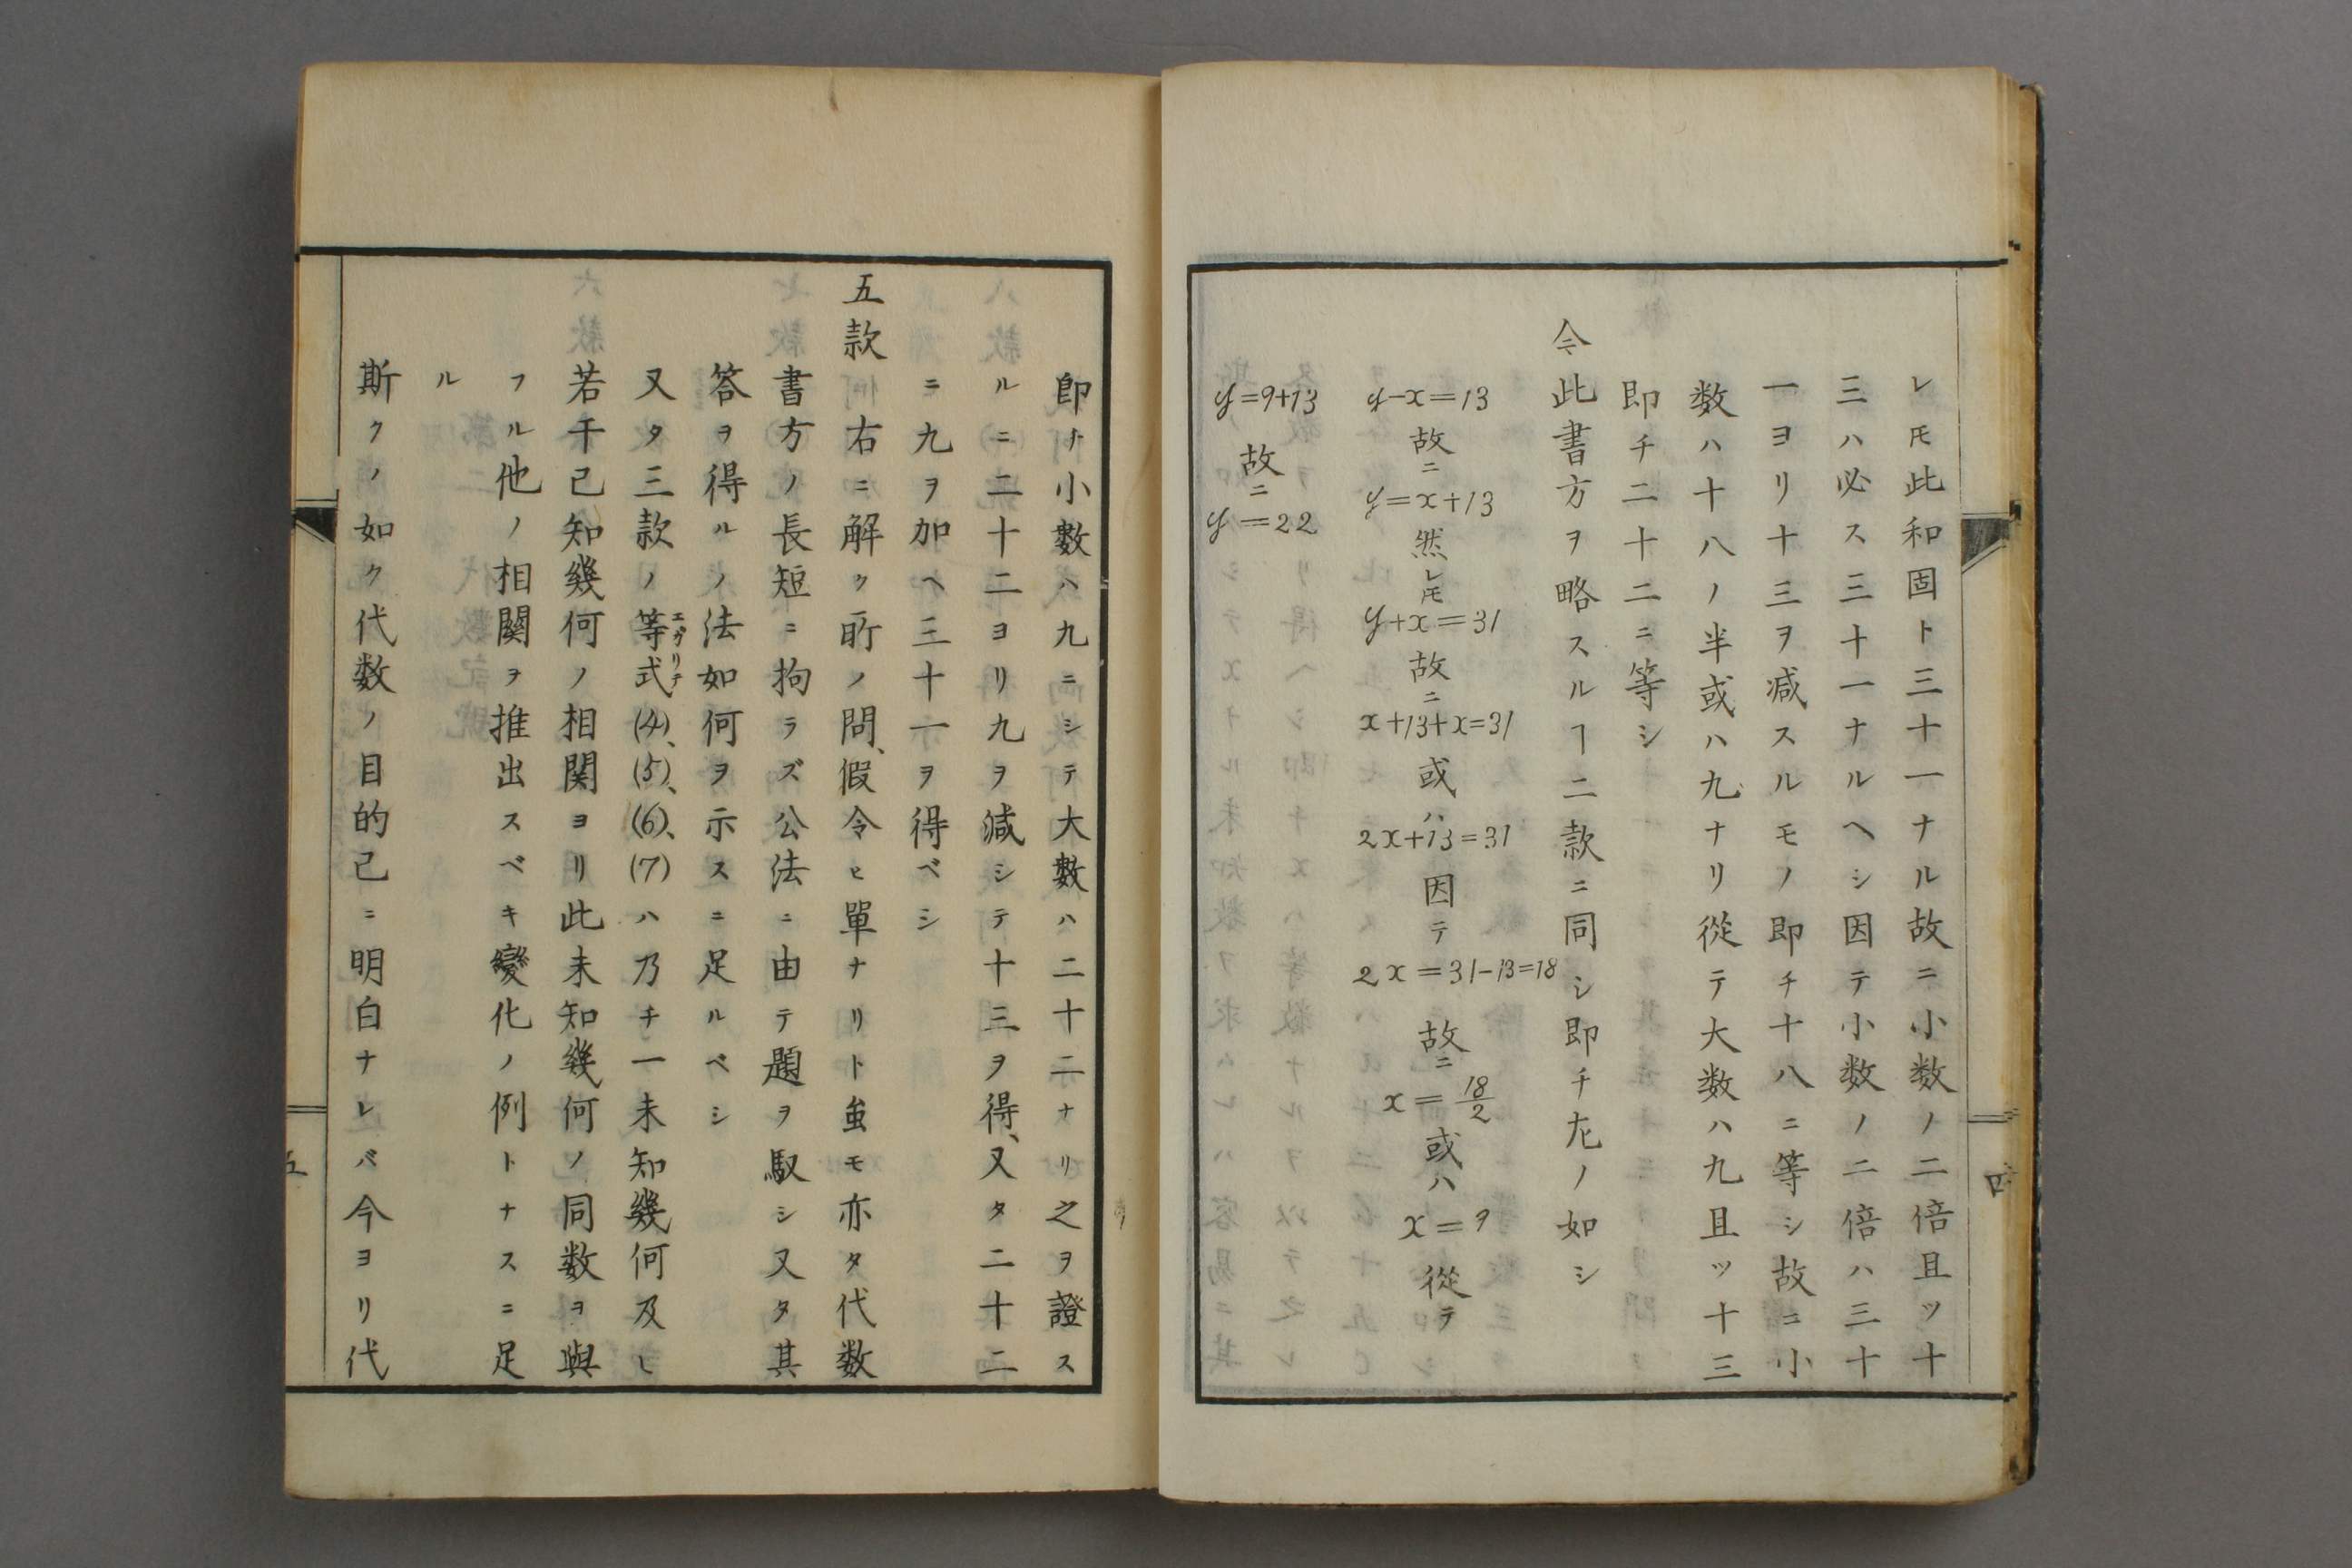 レ𪜈此和固ト三十一ナル故ニ小数ノ二倍且ツ十
三ハ必ス三十一ナルヘシ因テ小数ノ二倍ハ三十
一ヨリ十三ヲ减スルモノ即チ十八ニ等シ故ニ小
数ハ十八ノ半或ハ九ナリ從テ大数ハ九且ツ十三
即チ二十二ニ等シ
今此書方ヲ略スルヿ二款ニ同シ即チ左ノ如シ
y-x=13
故ニ
y=x+13
然レ𪜈
y+x=31
故ニ
x+13+x=31
或ハ
2x+13=31
因テ
2x=31-13=18
故ニ
x=18/2
或ハ
x=9
從テ
y=9+13
故ニ
y=22
四
即ナ小數ハ九ニシテ大數ハ二十二ナリ之ヲ證ス
ルニ二十二ヨリ九ヲ減シテ十三ヲ得、又タ二十二
ニ九ヲ加ヘ三十一ヲ得ベシ
五款 右ニ解ク所ノ問、假令ヒ單ナリト虽モ亦タ代数
書方ノ長短ニ拘ラズ公法ニ由テ題ヲ馭シ又タ其
答ヲ得ルノ法如何ヲ示スニ足ルベシ
又タ三款ノ等式(4)、(5)、(6)、(7)ハ乃チ一未知幾何及ヒ
エクリチ
若干已知幾何ノ相関ヨリ此未知幾何ノ同数ヲ與
フル他ノ相関ヲ推出スベキ變化ノ例トナスニ足
ル
斯クノ如ク代数ノ目的已ニ明白ナレバ今ヨリ代
五